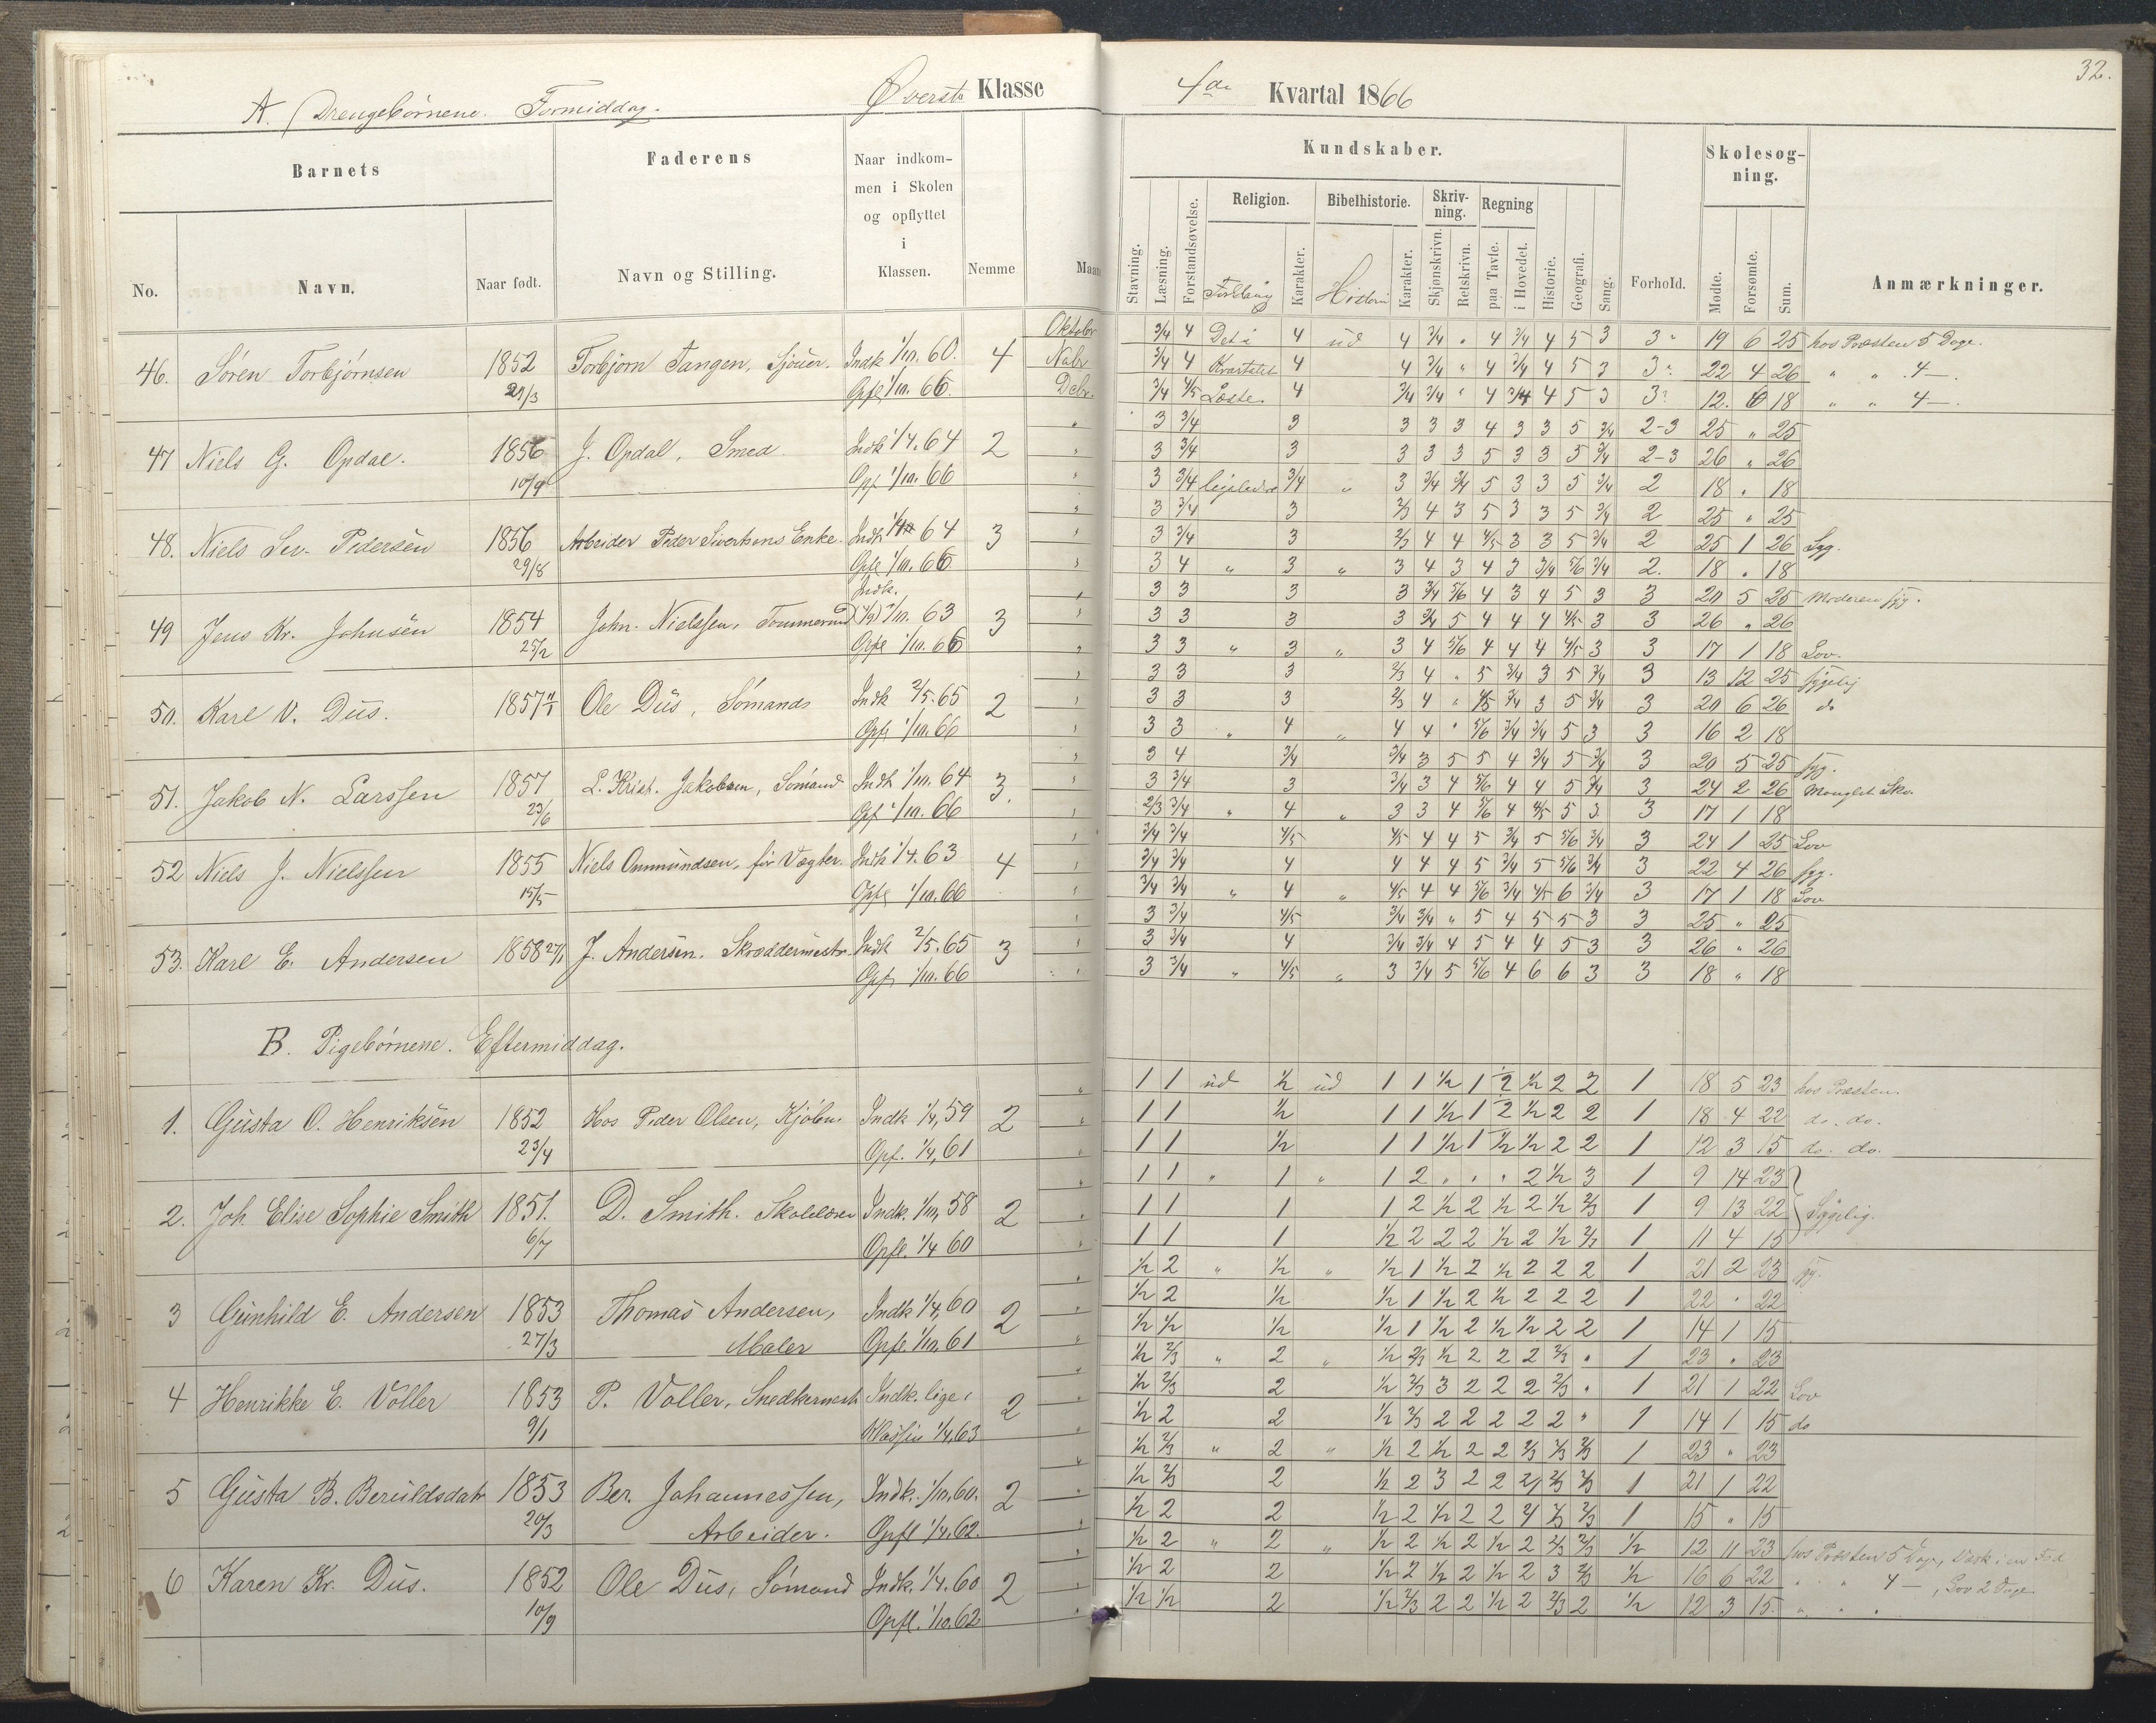 32.
A. Drengebørnene. Formiddag. Øverste Klasse 4de Kvartal 1866
Barnets
Faderens
Naar indkommen i Skolen og opflyttet i Klassen.
Nemme
Kundskaber.
Skolesøgning.
No. Navn. Naar født. Navn og Stilling. Stavning. Læsning. Forstandsøvelse. Religion. Karakter. Bibelhistorie. Karakter. Skrivning. Skjønskrivn. Retskrivn. Regning paa Tavle. i Hovedet. Historie. Geografi. Sang. Forhold. Mødte. Forsømte. Sum. Anmærkninger.
Oktober 3/4 4 Det i 4 ud 4 3/4 " 4 3/4 4 5 3 3 19 6 25 hos Præsten 5 Dage.
46. Søren Torbjørnsen 1852 Torbjørn Tangen, Sjouer. Indk 1/10. 60. 4 Nvbr 3/4 4 Kvartalet 4 4 3/4 " 4 3/4 4 5 3 3 22 4 26 " " 4 —
Opfl 1/10. 66. Dcbr. 3/4 4/5 Læste. 4 3/4 3/4 " 4 3/4 4 5 3 3 12. 6 18 " " 4 —.
3 3/4 3 3 3 3 4 3 3 5 3/4 2-3 25 " 25
47 Niels G. Opdal. 1856 J. Opdal, Smed. Indk 1/4. 64 2 3 3/4 3 3 3 3 5 3 3 5 3/4 2-3 26 " 26
10/9 Opf 1/10. 66 3 3/4 ligeledes 3/4 " 3 3/4 3/4 5 3 3 5 3/4 2 18 " 18
3 3/4 3 2/3 4 3 5 3 3 5 3/4 2 25 " 25
48. Niels Sev. Pedersen 1856 Arbeider Peder Sivertsens Enke. Indk 64 3 3 3/4 3 2/3 4 4 4/5 3 3 5 3/4 2 25 1 26 Syg.
29/8 Opfl 1/10. 66 3 4 " 3 " 3 4 3 4 3 3/4 5/6 3/4 2. 18 " 18
Indk. 3 3 3 3 3/4 5/6 4 3 4 5 3 3 20 5 25 Moderen syg.
49 Jens Kr. Johnsen 1854 John. Nielssen, 63 3 3 3 3 3 3/4 5 4 4 4 4/5 3 3 26 " 26
25/2 Opfl 1/10. 66 3 3 " 3 " 3 4 5/6 4 4 4 4/5 3 3 17 1 18 Lov.
3 3 3 2/3 4 " 5 3/4 3 5 3/4 3 13 12 25 sygelig
50. Karl V. Dus. 1857 Ole Dus, Sømand Indk 2/5. 65 2 3 3 3 2/3 4 " 4/5 3/4 3 5 3/4 3 20 6 26 do
Opfl 1/10. 66 3 3 " 4 " 4 4 " 5/6 3/4 3/4 5 3 3 16 2 18
3 4 3/4 3/4 3 5 5 4 3/4 5 3/4 3 20 5 25 syg.
51. Jakob N. Larssen 1857 L. Krist. Jakobsen, Sømand Indk 1/10. 64 3. 3 3/4 3 3/4 3 4 5/6 4 4 5 3/4 3 24 2 26 Manglet Sko.
23/6 Opf 1/10. 66 2/3 3/4 " 4 " 3 3 4 5/6 4 4/5 5 3 3 17 1 18
3/4 3/4 4/5 4/5 4 4 5 3/4 5 5/6 3/4 3 24 1 25 Lov
52 Niels J. Nielssen 1855 Niels Ommundsen, før Vægter. Indk 1/4. 63 4 3/4 3/4 4 4 4 4 5 3/4 5 5/6 3/4 3 22 4 26 syg.
15/5 Opfl 1/10. 66 3/4 3/4 " 4 " 4/5 4 4 5/6 3/4 4/5 6 3/4 3 17 1 18 Lov
3 3/4 4/5 3/4 3/4 " 5 4 5 5 3 3 25 " 25
53. Karl E. Andersen 1858 27/1 J. Andersen. Skræddermester. Indk 2/5. 65 3 3 3/4 4 3/4 3/4 4 5 4 4 5 3 3 26 " 26
Opfl 1/10. 66 3 3/4 " 4/5 " 3 3/4 5 5/6 4 6 6 3 3 18 " 18
B. Pigebørnene. Eftermiddag.
1 1 ud 1/2 ud 1 1 1/2 1 2 1/2 2 2 1 18 5 23 hos Præsten.
1. Gusta O. Henriksen 1852 Hos Peder Olsen, Kjøbm. Indk 1/4, 59 2 1 1 1/2 1 1 1/2 1 2 1/2 2 2 1 18 4 22 do. do.
23/4 Opf. 1/4, 61 1 1 1/2 1 1 1/2 1 1/2 1/2 2 2 1 12 3 15 do. do.
1 1 " 1 " 1 2 " " " 2 1/2 3 1 9 14 23
2. Joh. Elise Sophie Smith 1851. D. Smith. Skolelærer Indk. 1/10, 58 2 1 1 1 1 2 1/2 2 1/2 2 1/2 2/3 1 9 13 22 Sygelig.
6/7 Opfl. 1/4 60 1 1 1 1/2 2 2 2 1/2 2 1/2 2/3 1 11 4 15
1/2 2 " 1/2 " 1/2 1 1/2 2 1/2 2 2 2 1 21 2 23 syg.
3 Gunhild E. Andersen 1853 Thomas Andersen, Indk 1/4, 60 2 1/2 2 1/2 1/2 1 1/2 2 1/2 2 2 2 1 22 " 22
27/3 Maler Opfl. 1/10, 61 1/2 1/2 1/2 1/2 1 1/2 2 1/2 1/2 2 2 1 14 1 15
1/2 2/3 " 2 " 1/2 2/3 1/2 2 2 2 2/3 " 1 23 " 23
4 Henrikke E. Voller 1853 P. Voller, Snedkermestr Indk. lige i 2 1/2 2/3 2 1/2 2/3 3 2 2 2 2/3 " 1 21 1 22 Lov
9/1 Klassen 1/4, 63 1/2 2 2 1/2 2/3 2 2 2 2 2 " 1 14 1 15 do
1/2 2/3 " 2 " 1/2 2 1/2 2 2 2/3 2/3 2/3 1 23 " 23
5 Gusta B. Beruldsdatr 1853 Ber. Johannessen, Indk. 1/10, 60. 2 1/2 2/3 2 1/2 2 3 2 2 2/3 2/3 1 21 1 22
20/3 Arbeider. Opfl 1/4, 62. 1/2 2 2 1/2 2 1/2 2 2 2/3 2/3 1 15 " 15
1/2 2 " 2 " 1/2 2 1/2 2 1/2 2 2/3 2/3 1/2 12 11 23 hos Præsten 5 Dage,
6 Karen Kr. Dus. 1852 Ole Dus, Sømand Indk. 1/4. 60 2 1/2 2 2 1/2 2 1/2 2 1/2 2 3 2/3 1/2 16 6 22 " " 4 —, Lov 2 Dage
10/9 Opfl. 1/10. 62. 1/2 1/2 2 1/2 2/3 2 2 1/2 2 2/3 2 1/2 12 3 15. " " "